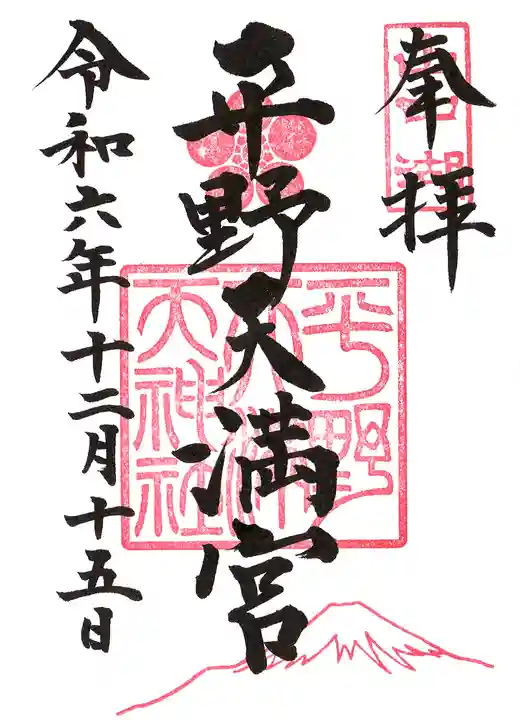 奉拝
平野天満宮
令和六年十二月十五日
平野
天神社